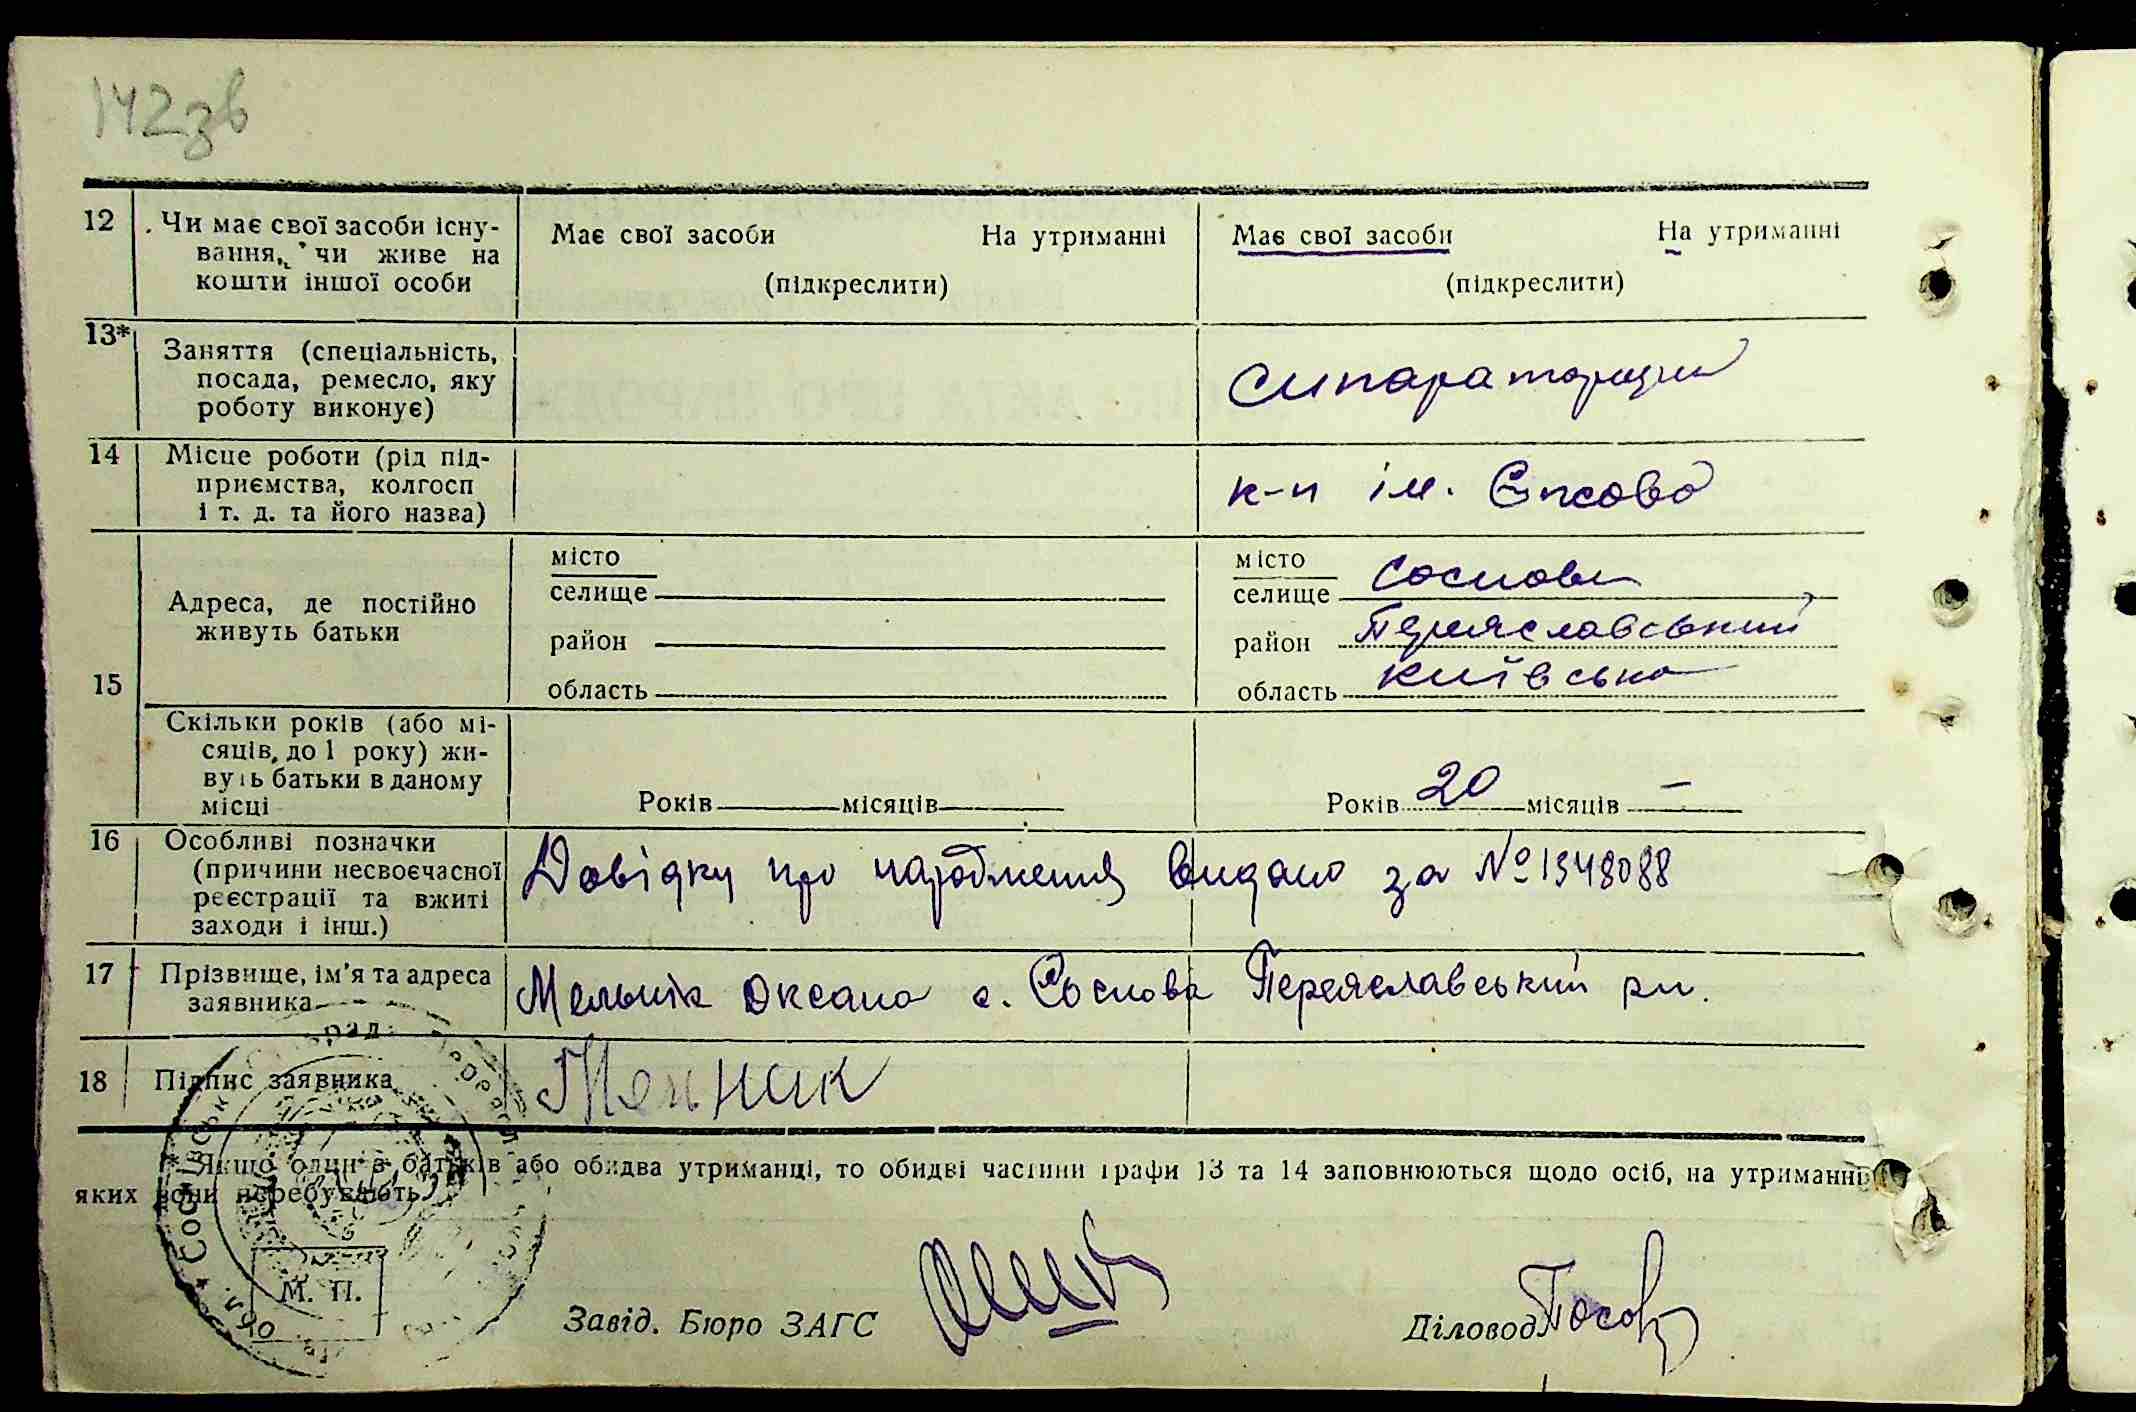 142зв
12 Чи має свої засоби існу-
вання, чи живе на
кошти іншої особи
Має свої засоби На утриманні
(підкреслити)
Має свої засоби На утриманні
(підкреслити)
13* Заняття (спеціальність,
посада, ремесло, яку
роботу виконує)
14 Місце роботи (рід під-
приємства, колгосп
і т. д. та його назва)
к-п ім.
15 Адреса, де постійно
живуть батьки
місто
селище
район
область
місто
селище Соснова
район Переяславський
область Київська
Скільки років (або мі-
сяців, до 1 року) жи-
вуть батьки в даному
місці
Років місяців
Років 20 місяців —
16 Особливі позначки
(причини несвоєчасної
реєстрації та вжиті
заходи і інш.)
Довідку про народження видано за № 1348088
17 Прізвище, ім'я та адреса
заявника
Мельнік Оксана с. Соснова Переяславський рн.
18 Підпис заявника
* Якщо один з батьків або обидва утриманці, то обидві частини графи 13 та 14 заповнюються щодо осіб, на утриманні
яких вони перебувають.
М. П.
Завід. Бюро ЗАГС
Діловод